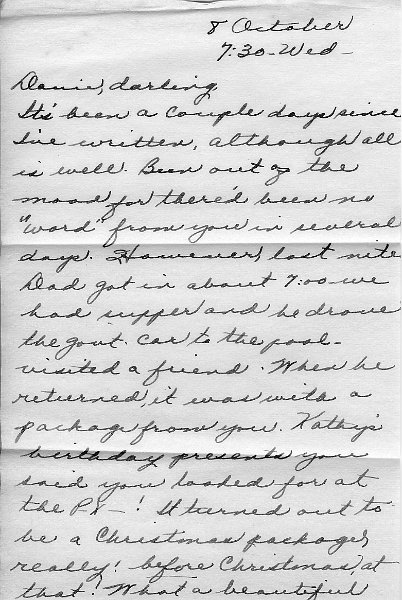 8 October
7:30-Wed-
Danie, darling,
It's been a couple days since
I've written, although all
is well. Been out of the
mood, for there'd been no
"word" from you in several
days. However, last nite
Dad got in about 7:00-we
had supper and he drove
the govt. car to the pool-
visited a friend. When he
returned, it was with a
package from you. Kathy's
birthday presents you
said you looked for at
the PX-! It turned out to
be a Christmas package,
really! before Christmas, at
that! What a beautiful